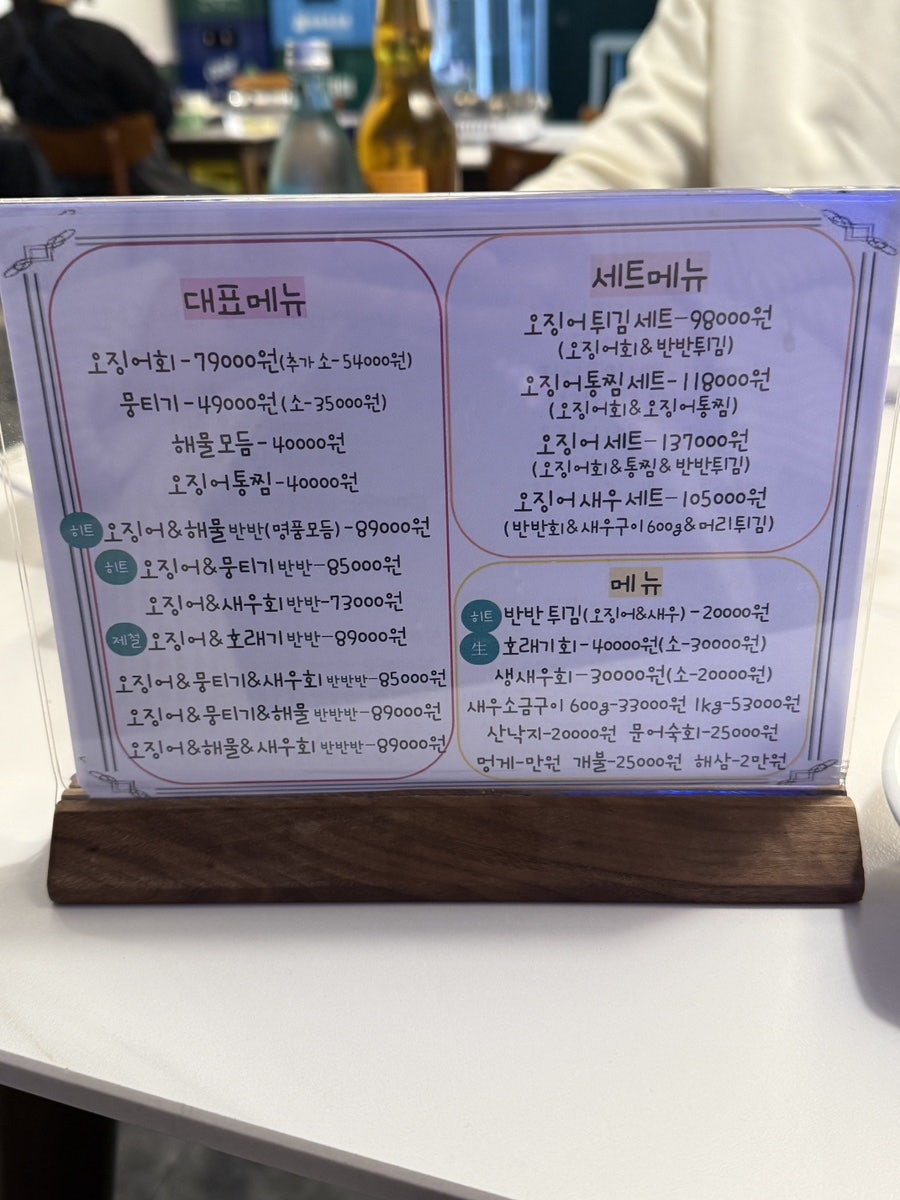 대표메뉴
오징어회-79000원(추가 소-54000원)
뭉티기-49000원(소-35000원)
해물모듬-40000원
오징어통찜-40000원
히트 오징어&해물 반반(명품모듬)-89000원
히트 오징어&뭉티기 반반-85000원
오징어&새우회 반반-73000원
제철 오징어&호래기 반반-89000원
오징어&뭉티기&새우회 반반반-85000원
오징어&뭉티기&해물 반반반-89000원
오징어&해물&새우회 반반반-89000원
세트메뉴
오징어튀김세트-98000원
(오징어회&반반튀김)
오징어통찜세트-118000원
(오징어회&오징어통찜)
오징어세트-137000원
(오징어회&통찜&반반튀김)
오징어새우세트-105000원
(반반회&새우구이600g&머리튀김)
메뉴
히트 반반튀김(오징어&새우)-20000원
生 호래기회-40000원(소-30000원)
생새우회-30000원(소-20000원)
새우소금구이 600g-33000원 1kg-53000원
산낙지-20000원 문어숙회-25000원
멍게-만원 개불-25000원 해삼-2만원